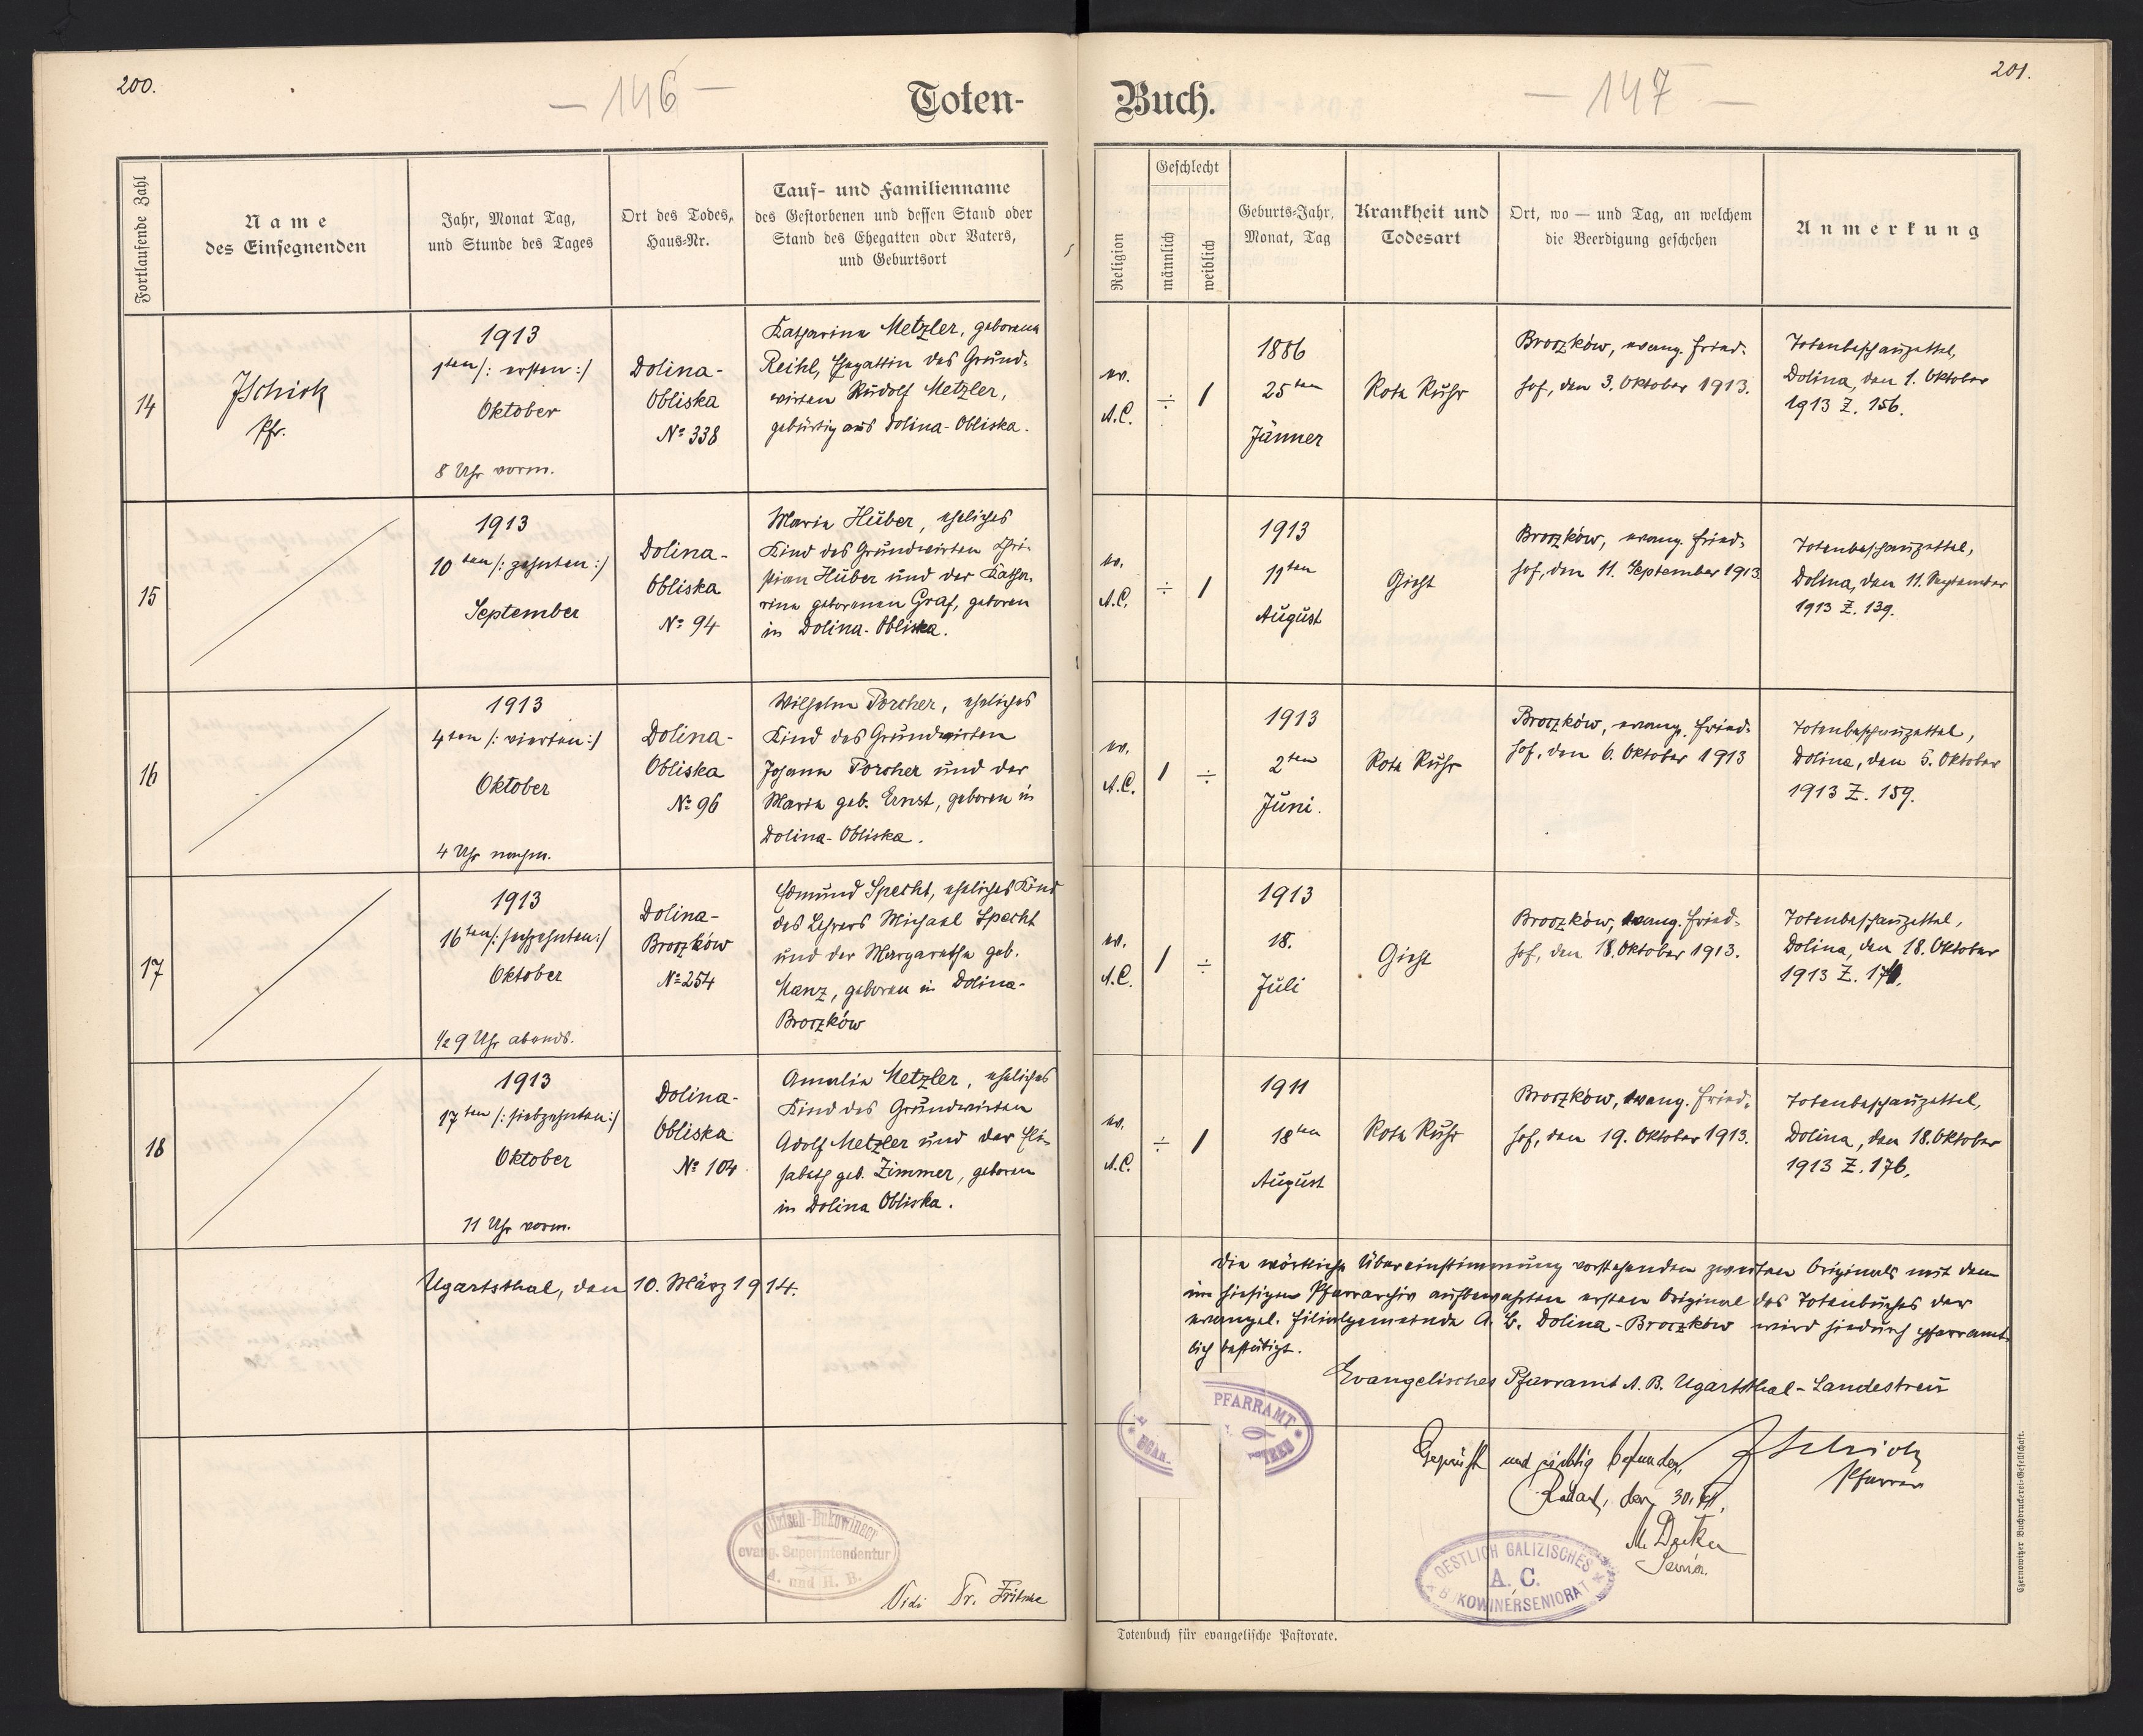 200.
— 146 —
Toten-
Fortlaufende Zahl
Name
des Einsegnenden
Jahr, Monat Tag,
und Stunde des Tages
Ort des Todes,
Haus-Nr.
Tauf- und Familienname
des Gestorbenen und dessen Stand oder
Stand des Ehegatten oder Vaters,
und Geburtsort
14
Jschick
Pfr.
1913
1ten /: ersten :/
Oktober
8 Uhr vorm.
Dolina-
Obliska
No 338
Katharina Metzler, geborene
Reihl, Ehegattin des Grund-
wirten Rudolf Metzler,
gebürtig aus Dolina-Obliska.
15
1913
10ten /: zehnten :/
September
Dolina-
Obliska
No 94
Maria Huber, eheliches
Kind des Grundwirten Chri-
stian Huber und der Katha-
rina geborenen Graf, geboren
in Dolina-Obliska.
16
1913
4ten /: vierten :/
Oktober
4 Uhr nachm.
Dolina-
Obliska
No 96
Wilhelm Porcher, eheliches
Kind des Grundwirten
Johann Porcher und der
Maria geb. Ernst, geboren in
Dolina-Obliska.
17
1913
16ten /: sechzehnten :/
Oktober
1/2 9 Uhr abends.
Dolina-
Broczków
No 254
Edmund Specht, eheliches Kind
des Lehrers Michael Specht
und der Margaretha geb.
Manz, geboren in Dolina-
Broczków
18
1913
17ten /: siebzehnten :/
Oktober
11 Uhr vorm.
Dolina-
Obliska
No 104
Amalia Metzler, eheliches
Kind des Grundwirten
Adolf Metzler und der Eli-
sabeth geb. Zimmer, geboren
in Dolina Obliska.
Ugartsthal, den 10. März 1914.
Galizisch-Bukowinaer
evang. Superintendentur
A. und H. B.
Vidi Dr. Fritsche
Buch.
— 147 —
201.
Religion
Geschlecht
männlich
weiblich
Geburts-Jahr,
Monat, Tag
Krankheit und
Todesart
Ort, wo — und Tag, an welchem
die Beerdigung geschehen
Anmerkung
ev.
A.C.
÷
1
1886
25ten
Jänner
Rote Ruhr
Broczków, evang. Fried-
hof, den 3. Oktober 1913.
Totenbeschauzettel,
Dolina, den 1. Oktober
1913 Z. 156.
ev.
A.C.
÷
1
1913
11ten
August
Gicht
Broczków, evang. Fried-
hof, den 11. September 1913
Totenbeschauzettel,
Dolina, den 11. September
1913 Z. 139.
ev.
A.C.
1
÷
1913
2ten
Juni.
Rote Ruhr
Broczków, evang. Fried-
hof, den 6. Oktober 1913
Totenbeschauzettel,
Dolina, den 5. Oktober
1913 Z. 159.
ev.
A.C.
1
÷
1913
18.
Juli
Gicht
Broczków, evang. Fried-
hof, den 18. Oktober 1913.
Totenbeschauzettel,
Dolina, den 18. Oktober
1913 Z.
ev.
A.C.
÷
1
1911
18ten
August
Rote Ruhr
Broczków, evang. Fried-
hof, den 19. Oktober 1913.
Totenbeschauzettel,
Dolina, den 18. Oktober
1913 Z. 176.
Die wörtliche Übereinstimmung vorstehenden zweiten Originals mit dem
im hiesigen Pfarrarchiv aufbewahrten ersten Original des Totenbuches der
evangel. Filialgemeinde A. B. Dolina-Broczków wird hiedurch pfarramt-
lich bestätigt.
Evangelisches Pfarramt A. B. Ugartsthal-Landestreu
PFARRAMT
UGAR-
TREU
Jschick
Pfarrer
Geprüft und richtig befunden,
den 30.
Senior.
OESTLICH GALIZISCHES
A. C.
BUKOWINERSENIORAT
Totenbuch für evangelische Pastorate.
Czernowitzer Buchdruckerei-Gesellschaft.